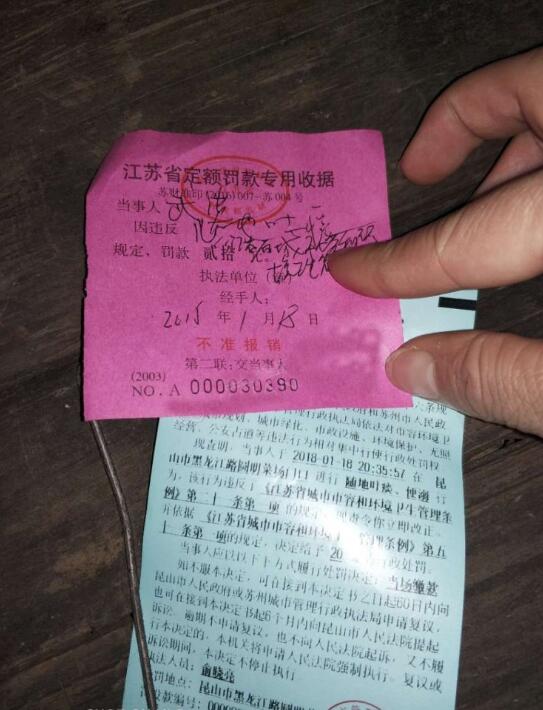 江苏省定额罚款专用收据
苏财准印(2016)007-苏004号
当事人
因违反
规定、罚款 贰拾
执法单位(章)
经手人:
2018 年 1 月 18 日
不准报销
第二联:交当事人
(2003)
NO.A 000030390
和苏州市人民政
城市绿化、市政设施、环境保护、无照
经营、公安古道等违法行为相对集中行使行政处罚权
现查明,当事人于 2018-01-18 20:35:57 在 昆
山市黑龙江路圆明菜场门口 进行 随地吐痰、便溺 行
为,该行为违反了《江苏省城市市容和环境卫生管理条
例》第二十一条第一项 的规定,现责令你立即改正。
并依据《江苏省城市市容和环境卫生管理条例》第五
十一条第一项的规定,决定给予 20 行政处罚。
当事人应以以下方式履行处罚决定:当场缴款
如不服本决定,可在接到本决定书之日起60日内向
昆山市人民政府或苏州城市管理行政执法局申请复议,
也可在接到本决定书起6个月内向昆山市人民法院提起
诉讼。逾期不申请复议,也不向人民法院起诉,又不履
行本决定的,本机关将申请人民法院强制执行。复议或
诉讼期间,本决定不停止执行
执法人员:俞晓亮
罚地点:昆山市黑龙江路圆明
款编号:0000